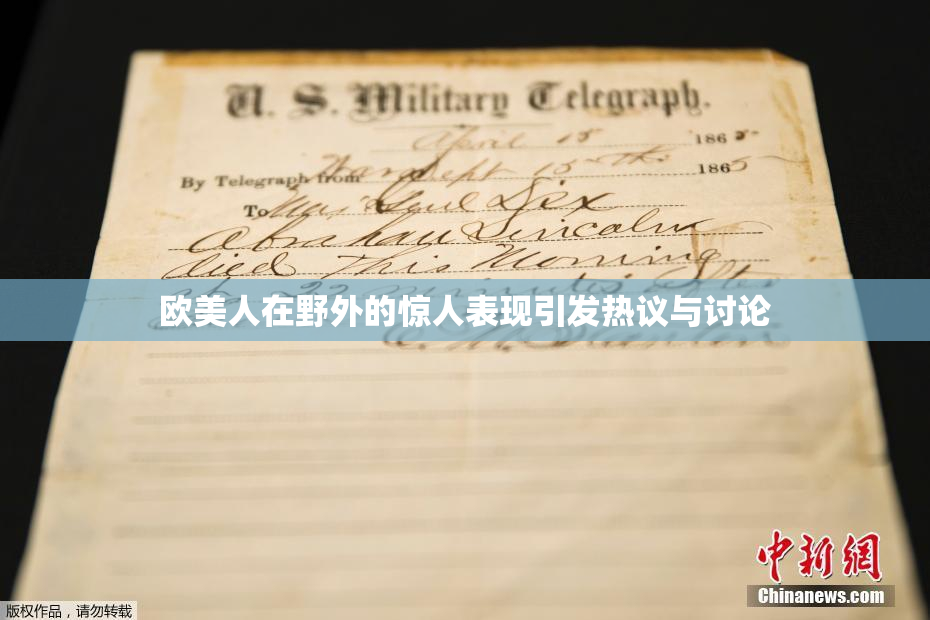 U. S. Military Telegraph.
April 15 1865
By Telegraph from War Dept 15th 1865
To Maj Genl Dix
Abraham Lincoln
died This Morning
at 22 minutes after
欧美人在野外的惊人表现引发热议与讨论
E. M. Stanton
中新网
Chinanews.com
版权作品，请勿转载